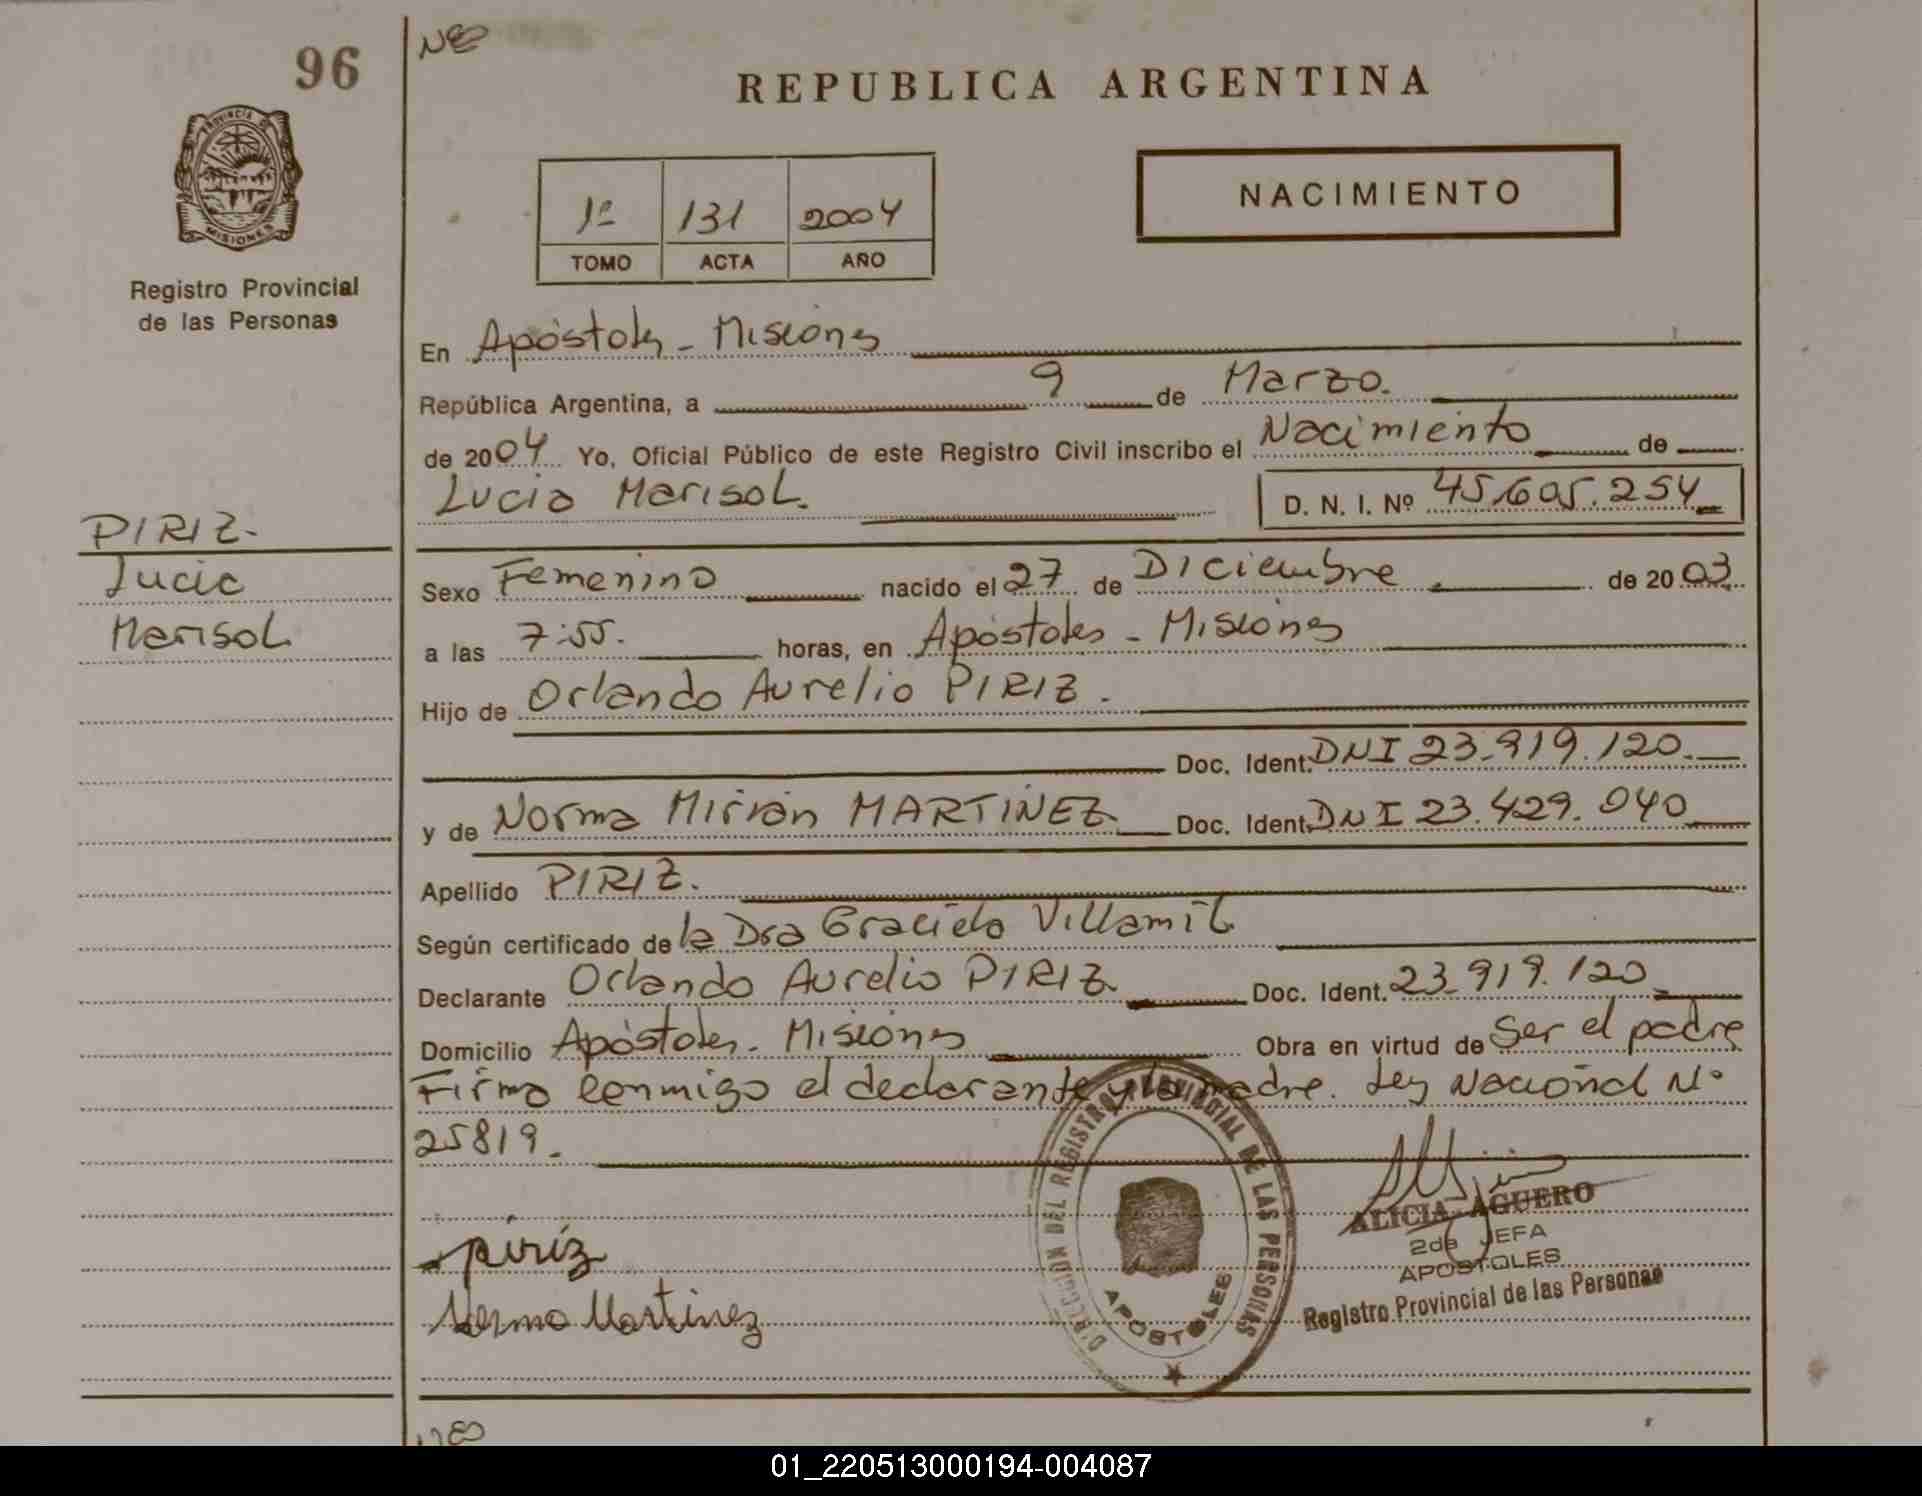 96
NES
REPUBLICA ARGENTINA
PROVINCIA DE MISIONES
Registro Provincial
de las Personas
1º 131 2004
TOMO ACTA AÑO
NACIMIENTO
En Apóstoles - Misiones
República Argentina, a 9 de Marzo.
de 2004 Yo, Oficial Público de este Registro Civil inscribo el Nacimiento de
Lucia Marisol. D. N. I. Nº 45.605.254
PIRIZ.
Lucia
Marisol
Sexo Femenino nacido el 27 de Diciembre de 2003
a las 7:55. horas, en Apóstoles - Misiones
Hijo de Orlando Aurelio PIRIZ.
Doc. Ident. DNI 23.919.120.
y de Norma Mirian MARTINEZ Doc. Ident. DNI 23.429.040
Apellido PIRIZ.
Según certificado de la Dra Graciela Villamil
Declarante Orlando Aurelio PIRIZ Doc. Ident. 23.919.120
Domicilio Apóstoles. Misiones Obra en virtud de Ser el padre
Firma conmigo el declarante y la madre. Ley Nacional Nº
25819.
DIRECCION DEL REGISTRO PROVINCIAL DE LAS PERSONAS
APOSTOLES
ALICIA AGUERO
2da JEFA
APOSTOLES
Registro Provincial de las Personas
piriz
Norma Martinez
01_220513000194-004087